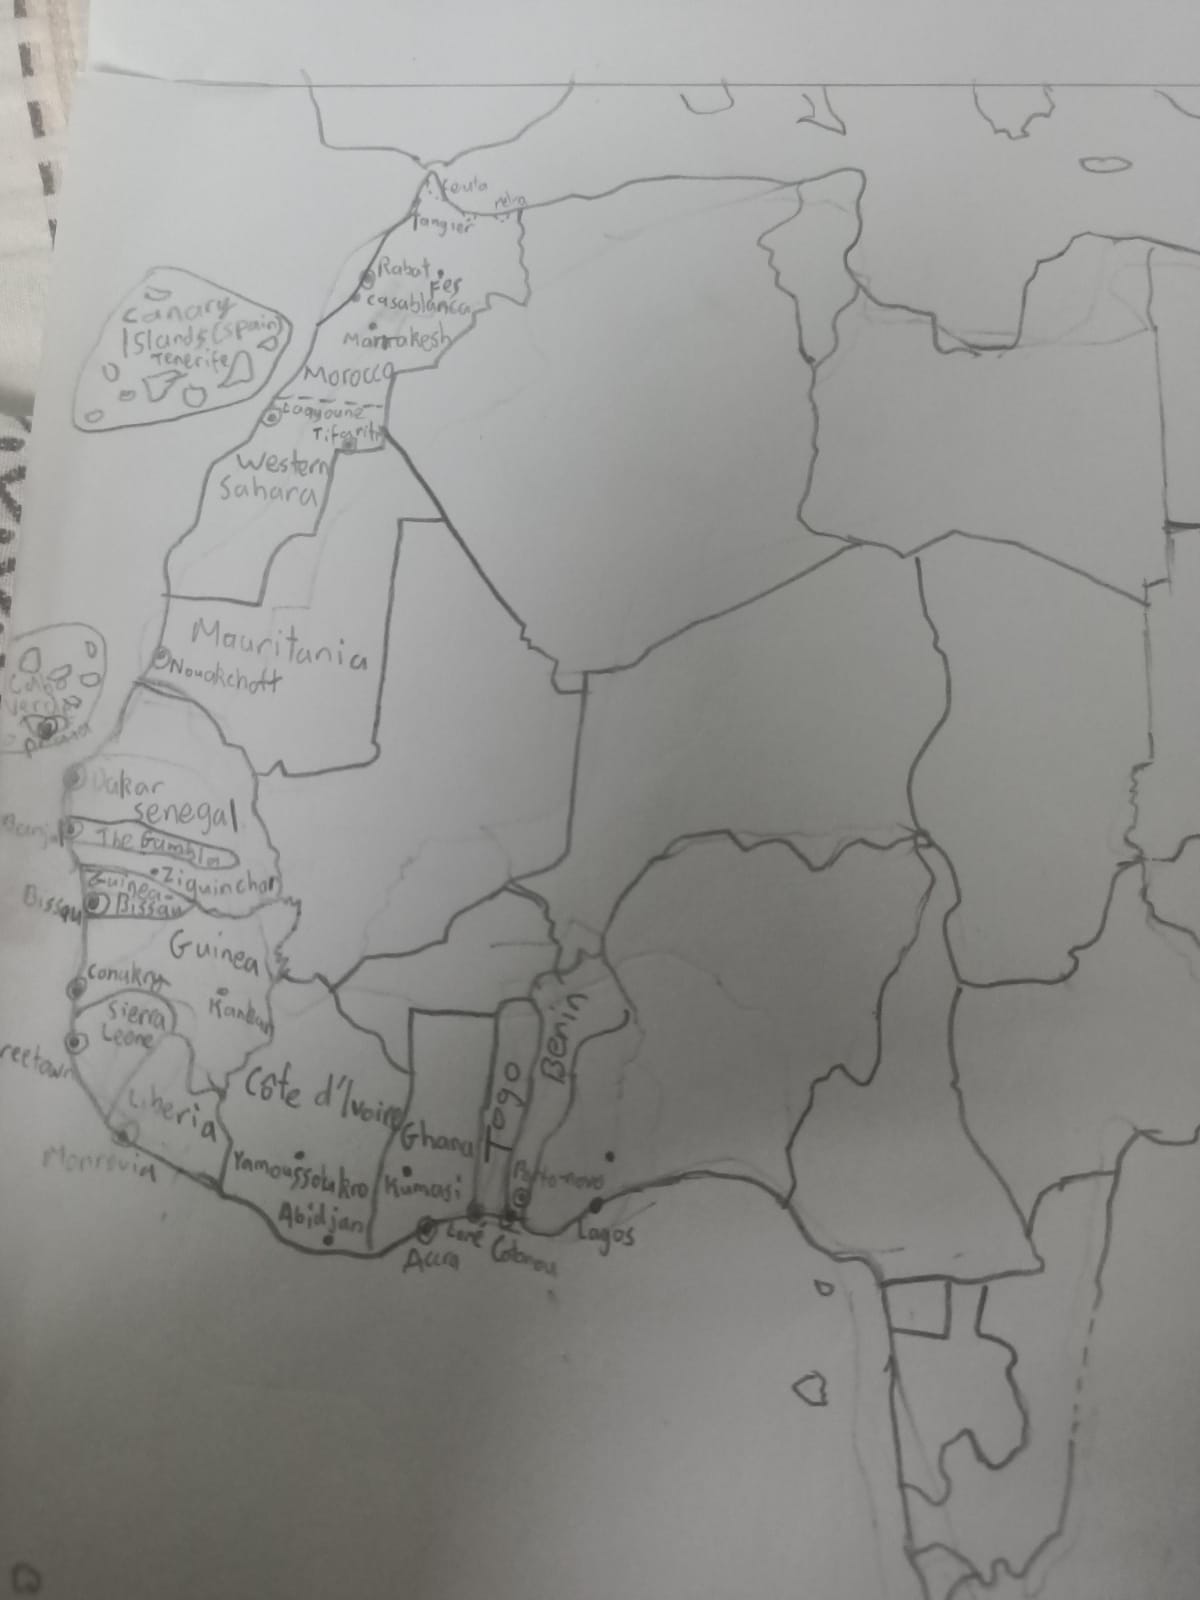 Ceuta
Tangier
Rabat
Fes
Casablanca
Marrakesh
Morocco
Canary
Islands (Spain)
Tenerife
Laayoune
Tifariti
Western
Sahara
Mauritania
Nouakchott
Cabo
Verde
Praia
Dakar
Senegal
The Gambia
Ziguinchor
Guinea-
Bissau
Bissau
Guinea
Conakry
Kankan
Sierra
Leone
reetown
Liberia
Monrovia
Côte d'Ivoire
Yamoussoukro
Abidjan
Ghana
Kumasi
Accra
Togo
Lomé
Benin
Porto-novo
Cotonou
Lagos